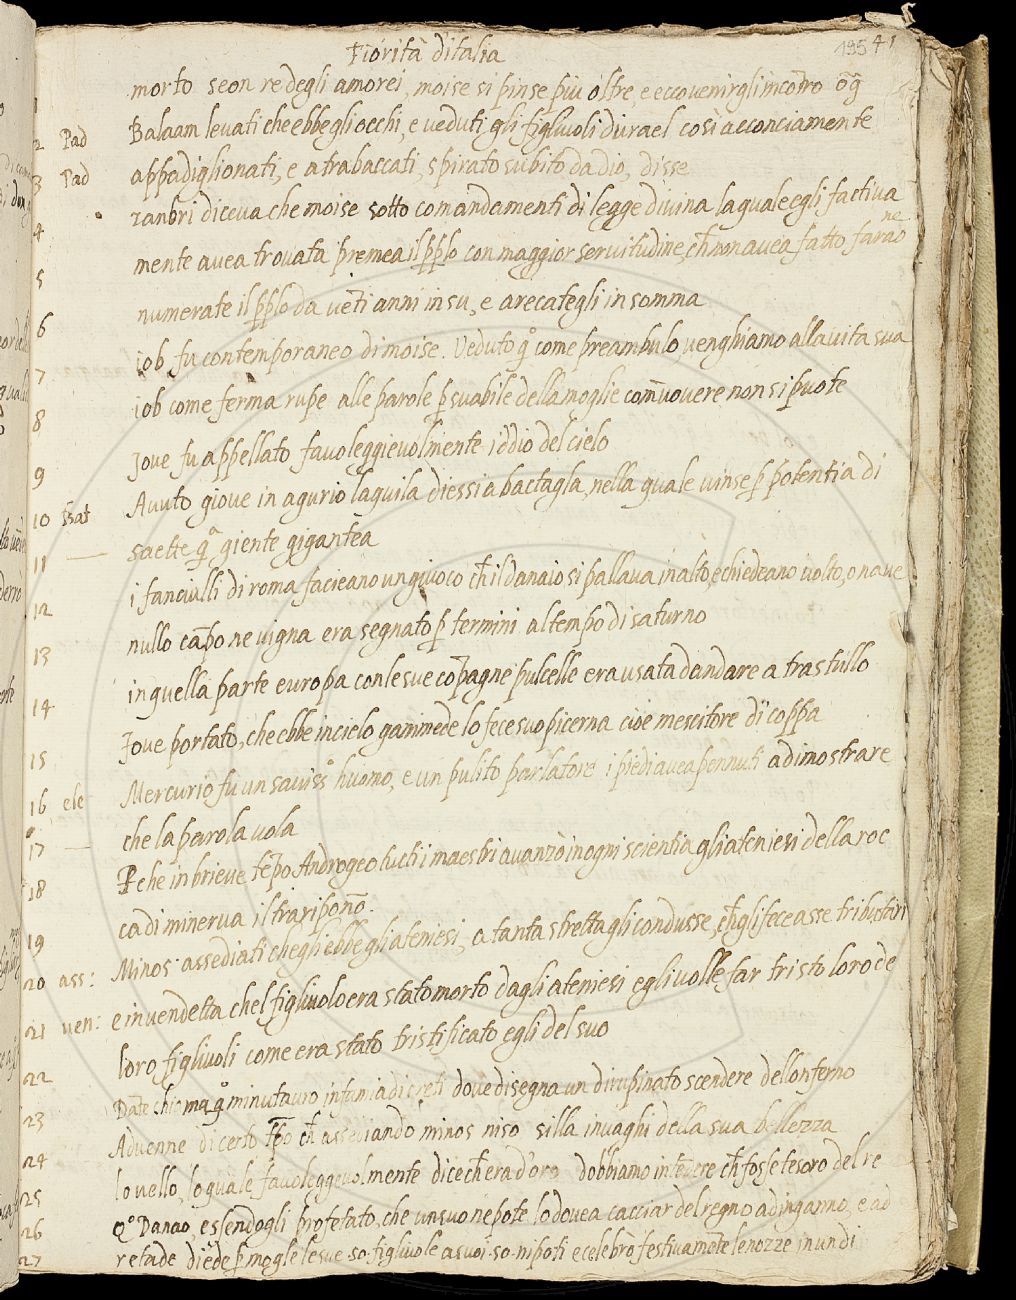 Fiorità ditalia
195 41
morto seon re degli amorei, moise si pinse più oltre, e eccovenirgli incōtro ōg
2 Pad Balaam levati che ebbe gli occhi, e veduti gli figliuoli disrael così acconciamente
3 Pad appadiglionati, e atrabaccati, spirato subito da dio, disse
zanbri diceva che moise sotto comandamenti di legge divina laquale egli factiva
4 mente avea trovata premea il pplo con maggior servitudine, ch̄ non avea fatto farao
ne
5 numerate il pplo da vēti anni in su, e arecategli in somma
6 iob fu contemporaneo di moise. Veduto qo come preambulo, venghiamo alla vita sua
7 iob come ferma rupe alle parole psuabile della moglie com̄uovere non si puote
8
Jove fu appellato favoleggievolmente iddio del cielo
9 Avuto giove in agurio laguila diessi a bactagla, nella quale vinse p potentia di
10 Bat
saette qa giente gigantea
11 i fanciulli di roma facieano un giuoco ch̄ il danaio si pallava in alto, e chiedeano volto, o nave
12 nullo cāpo ne vigna era segnato p termini al tempo di saturno
13 in quella parte europa con le sue cōpagne pulcelle era usata dandare a trastullo
14 Jove portato, che ebbe in cielo ganimede lo fece suo picerna cioè mescitore di coppa
15 Mercurio fu un saviss.o huomo, e un pulito parlatore i piedi avea pennuti a dimostrare
16 ele che la parola vola
17 Pche in brieve tēpo Androgeo lucti i maestri avanzò in ogni scientia gli ateniesi della roc
18 ca di minerva il traripono.
19 Minos assediati che gli ebbe gli ateniesi, a tanta stretta gli condusse, ch̄ gli fece asse tributari
20 ass: e in vendetta chel figliuolo era stato morto dagli ateniesi egli volle far tristo loro de
21 ven: loro figliuoli come era stato tristificato egli del suo
22 Dāte chiama qo minutauro infamia di creti dove disegna un dirupinato scendere dellonferno
23 Advenne di certo tpo ch̄ assediando minos niso silla invaghi della sua bellezza
24 lo vello, lo quale favoleggevolmente dice ch̄ era d'oro dobbiamo intēdere ch̄ fosse tesoro del re
25
26 Qo Danao, essendogli profetato, che un suo nepote lo dovea cacciar del regno ad inganno, e ad
27 retade diede p mogle le sue ·50· figliuole a suoi ·50· nipoti e celebrò festivamēte le nozze in un dì